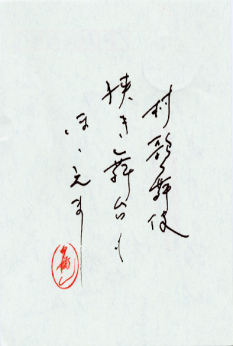 村歌舞伎
狭き舞台も
ほゝえまし